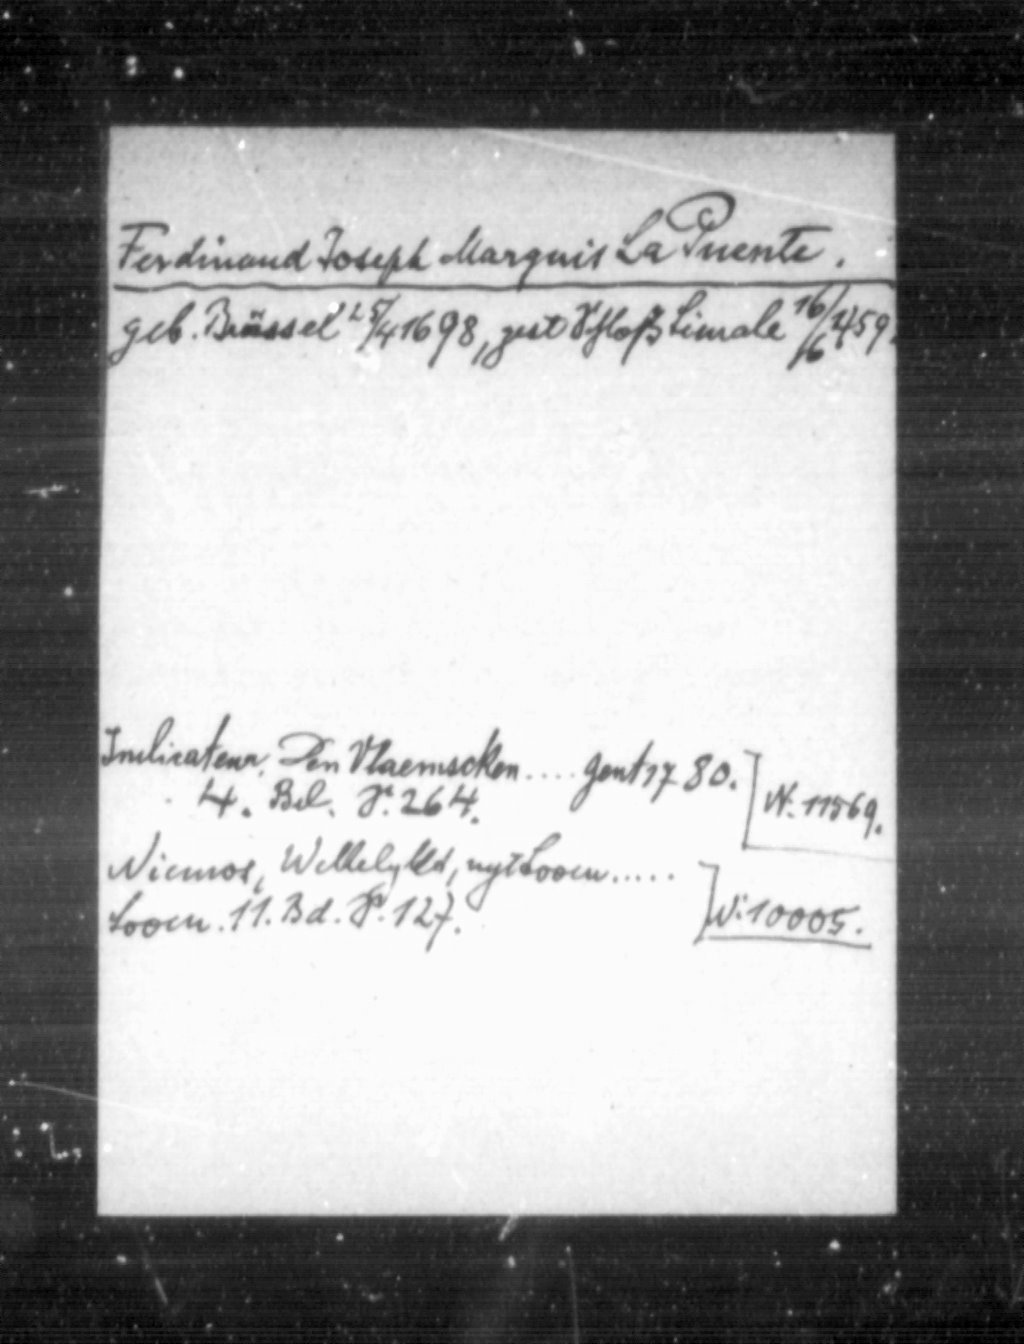 Ferdinand Joseph Marquis La Puente.
geb. Brüssel 25/4 1698, gest Schloß Limale 16/6 1759.
Indicateur, Den Vlaemscken .... gent 1780.
4. Bd. S. 264.
N. 11569.
Looen .....
Looen. 11. Bd. S. 127.
N. 10005.